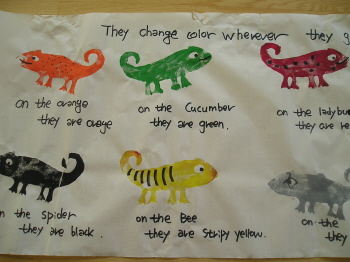 They change color wherever they g
on the orange
they are orange
on the Cucumber
they are green.
on the ladybu
they are re
n the spider
they are black.
on the Bee
they are Stripy yellow.
on the
they